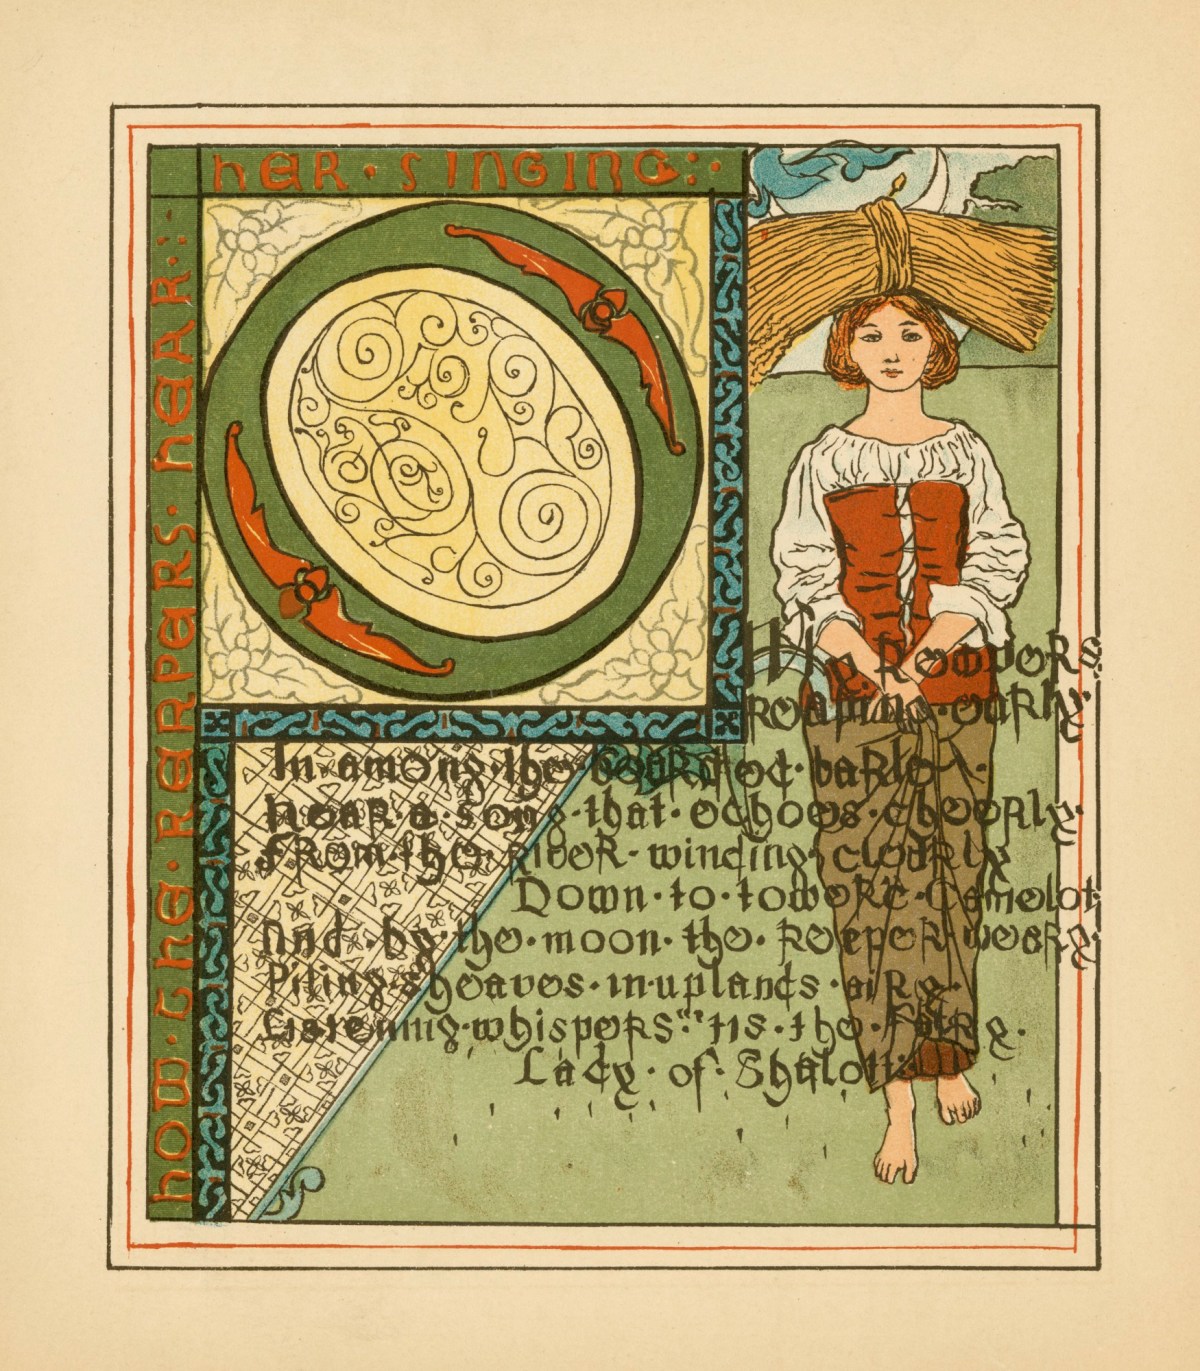 how · the · reapers · hear ·:·
her · singing :·
O
nly reapers
reaping · early ·
In · among · the · bearded · barley ·
hear · a · song · that · echoes · cheerly ·
From · the · river · winding · clearly
Down · to · tower'd · Camelot
And · by · the · moon · the · reaper · weary ·
Piling · sheaves · in · uplands · airy ·
Listening · whispers · "'tis · the · Fairy ·
Lady · of · Shalott